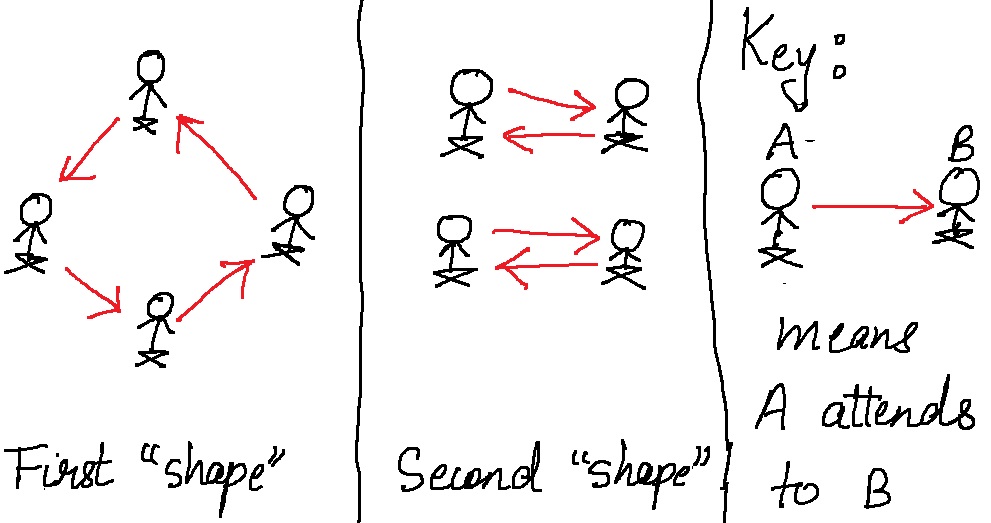 First "shape"
Second "shape"
Key:
A B
means
A attends
to B